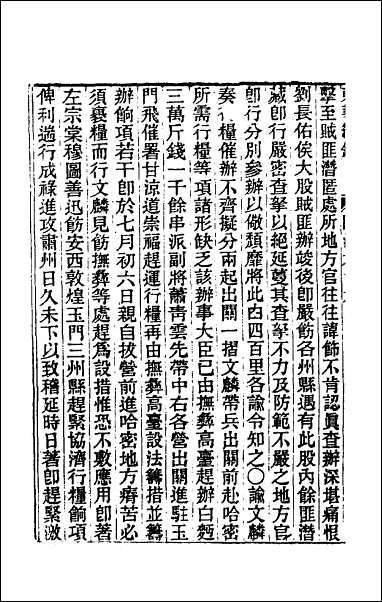 擊至賊匪潛匿處所地方官往往諱飾不肯認眞查辦深堪痛恨
劉長佑俟大股賊匪辦竣後卽嚴飭各州縣遇有此股內餘匪潛
藏卽行嚴密查拏以絕延蔓其查拏不力及防範不嚴之地方官
卽行分別參辦以儆頽靡將此由四百里各諭令知之〇諭文麟
奏行糧催辦不齊擬分兩起出關一摺文麟帶兵出關前赴哈密
所需行糧等項諸形缺乏該辦事大臣已由撫彝高臺趕辦白麪
三萬斤錢一千餘串派副將蕭靑雲先帶中右各營出關進駐玉
門飛催署甘涼道崇福趕運行糧再由撫彝高臺設法籌措並籌
辦餉項若干卽於七月初六日親自拔營前進哈密地方瘠苦必
須裹糧而行文麟見飭撫彝等處趕爲設措惟恐不敷應用卽著
左宗棠穆圖善迅飭安西敦煌玉門三州縣趕緊協濟行糧餉項
俾利遄行成祿進攻肅州日久未下以致稽延時日著卽趕緊激